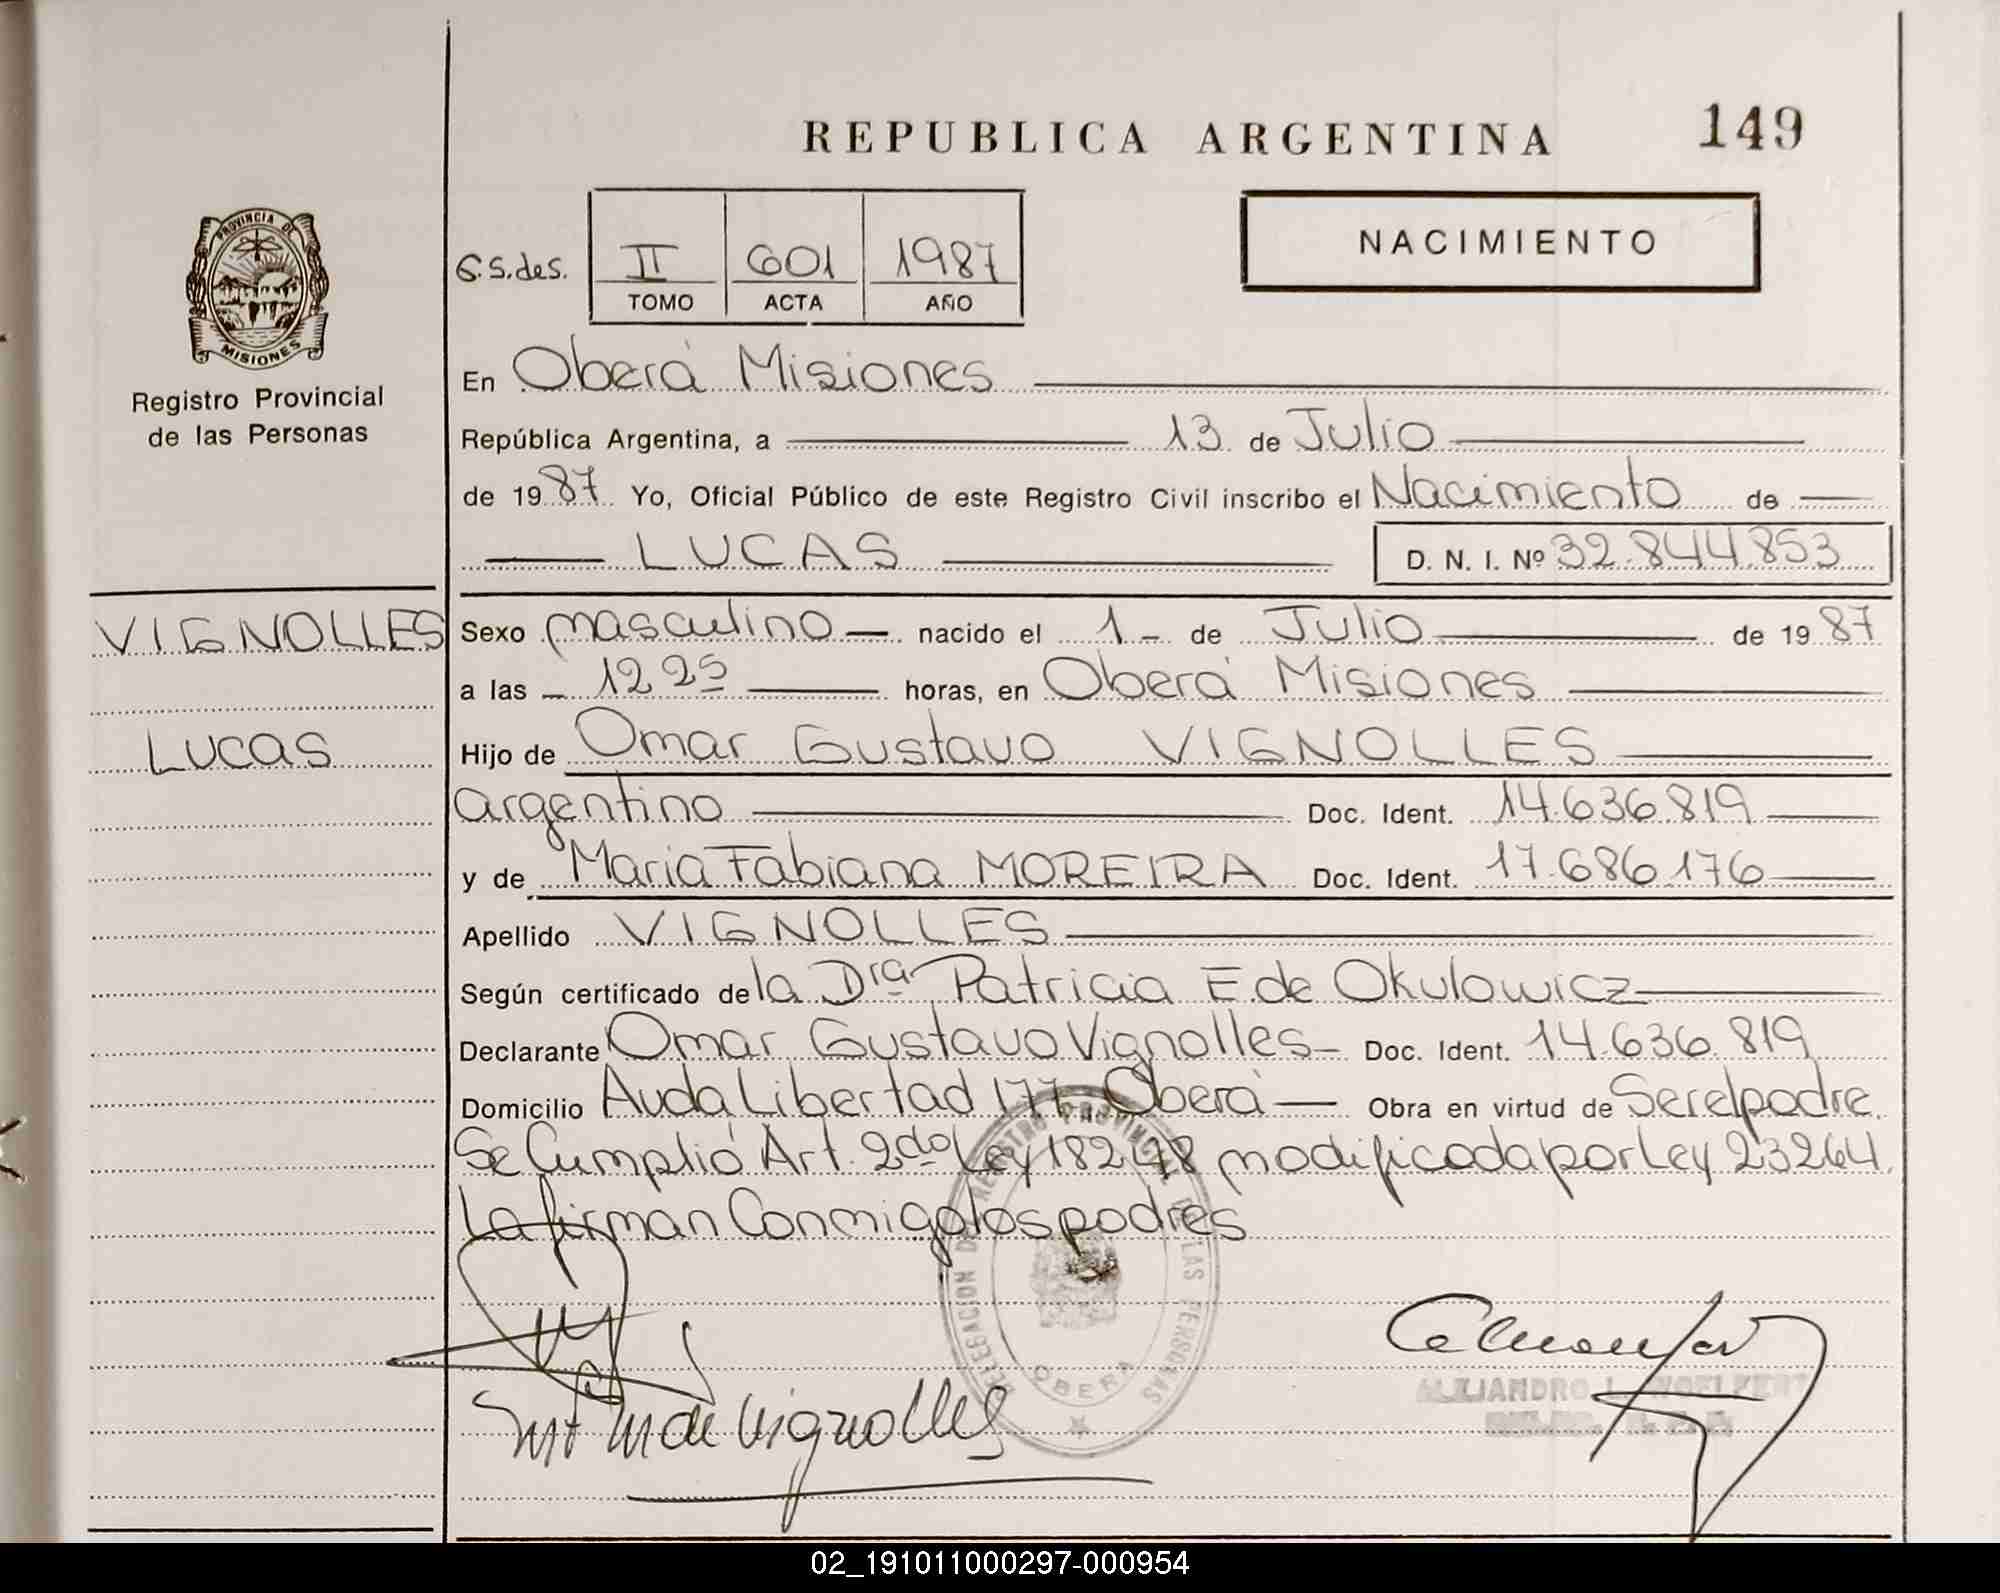 REPUBLICA ARGENTINA 149
NACIMIENTO
G.S.des. II 601 1987
TOMO ACTA AÑO
PROVINCIA DE
MISIONES
Registro Provincial
de las Personas
En Oberá Misiones
República Argentina, a 13 de Julio
de 1987 Yo, Oficial Público de este Registro Civil inscribo el Nacimiento de
LUCAS D. N. I. Nº 32.844.853
VIGNOLLES
Lucas
Sexo masculino nacido el 1 de Julio de 1987
a las 12 25 horas, en Oberá Misiones
Hijo de Omar Gustavo VIGNOLLES
argentino Doc. Ident. 14.636.819
y de Maria Fabiana MOREIRA Doc. Ident. 17.686.176
Apellido VIGNOLLES
Según certificado de la Dra Patricia E. de Okulowicz
Declarante Omar Gustavo Vignolles Doc. Ident. 14.636.819
Domicilio Avda Libertad 177 Oberá Obra en virtud de Ser el padre.
Se Cumplió Art. 2do Ley 18248 modificada por Ley 23264.
La firman Conmigo los padres
DELEGACION DEL REGISTRO PROVINCIAL DE LAS PERSONAS
OBERA
de Vignolles
ALEJANDRO L.
02_191011000297-000954